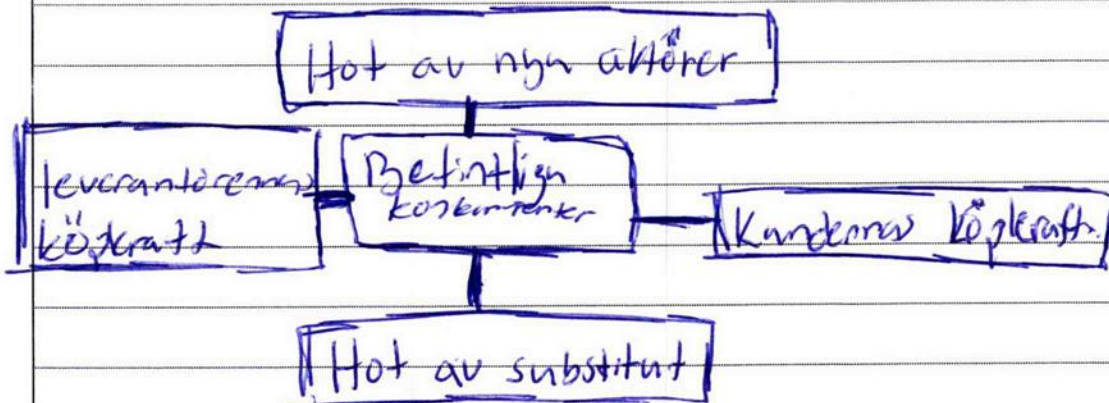 Hot av nya aktörer
leverantörernas
köpkraft
Befintliga
konkurrenter
Kundernas köpkraft.
Hot av substitut